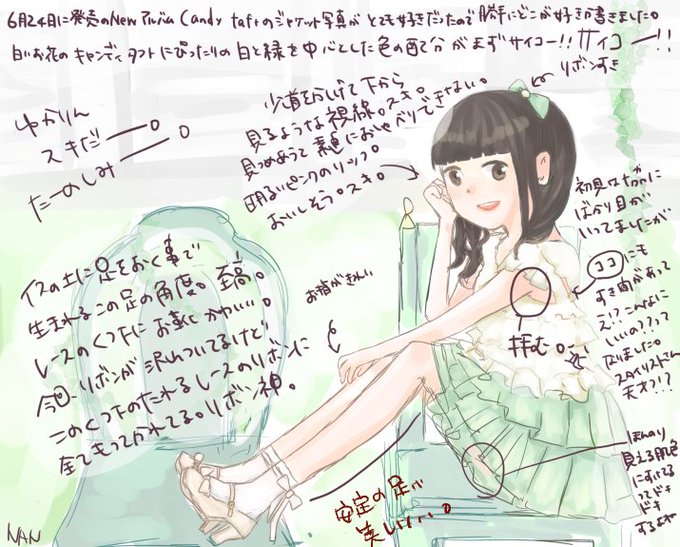 6月24日に発売のNew アルバム Candy taftのジャケット写真がとても好きだったので勝手にどこが好きか書きました。
白いお花のキャンディタフトにぴったりの白と緑を中心とした色の配分がまずサイコー!! サイコー!!
ゆかりん
スキだー。
たーのしみー。
少し首をかしげて下から
見るような視線。スキ。
見つめあうと素直におしゃべりできない。
明るいピンクのリップ。
おいしそう。スキ。
リボンすき
初見は
ばかり目が
いってましたが
ココにも
すき間があって
え!?こんなに
いいの??って
なりました。
スタイリストさん
天才!?
拝む。
お指がきれい
イスの上に足をおく事で
生まれるこの足の角度。至高。
レースのくつ下にお靴にかわいい。
今回、リボンが沢山ついてるけど
このくつ下のたれるレースのリボンに
全てもってかれてる。リボン神。
安定の足が
美しい…。
ほんのり
見える肌色
にすいてる
ってドキ
ドキ
するよね
NAN